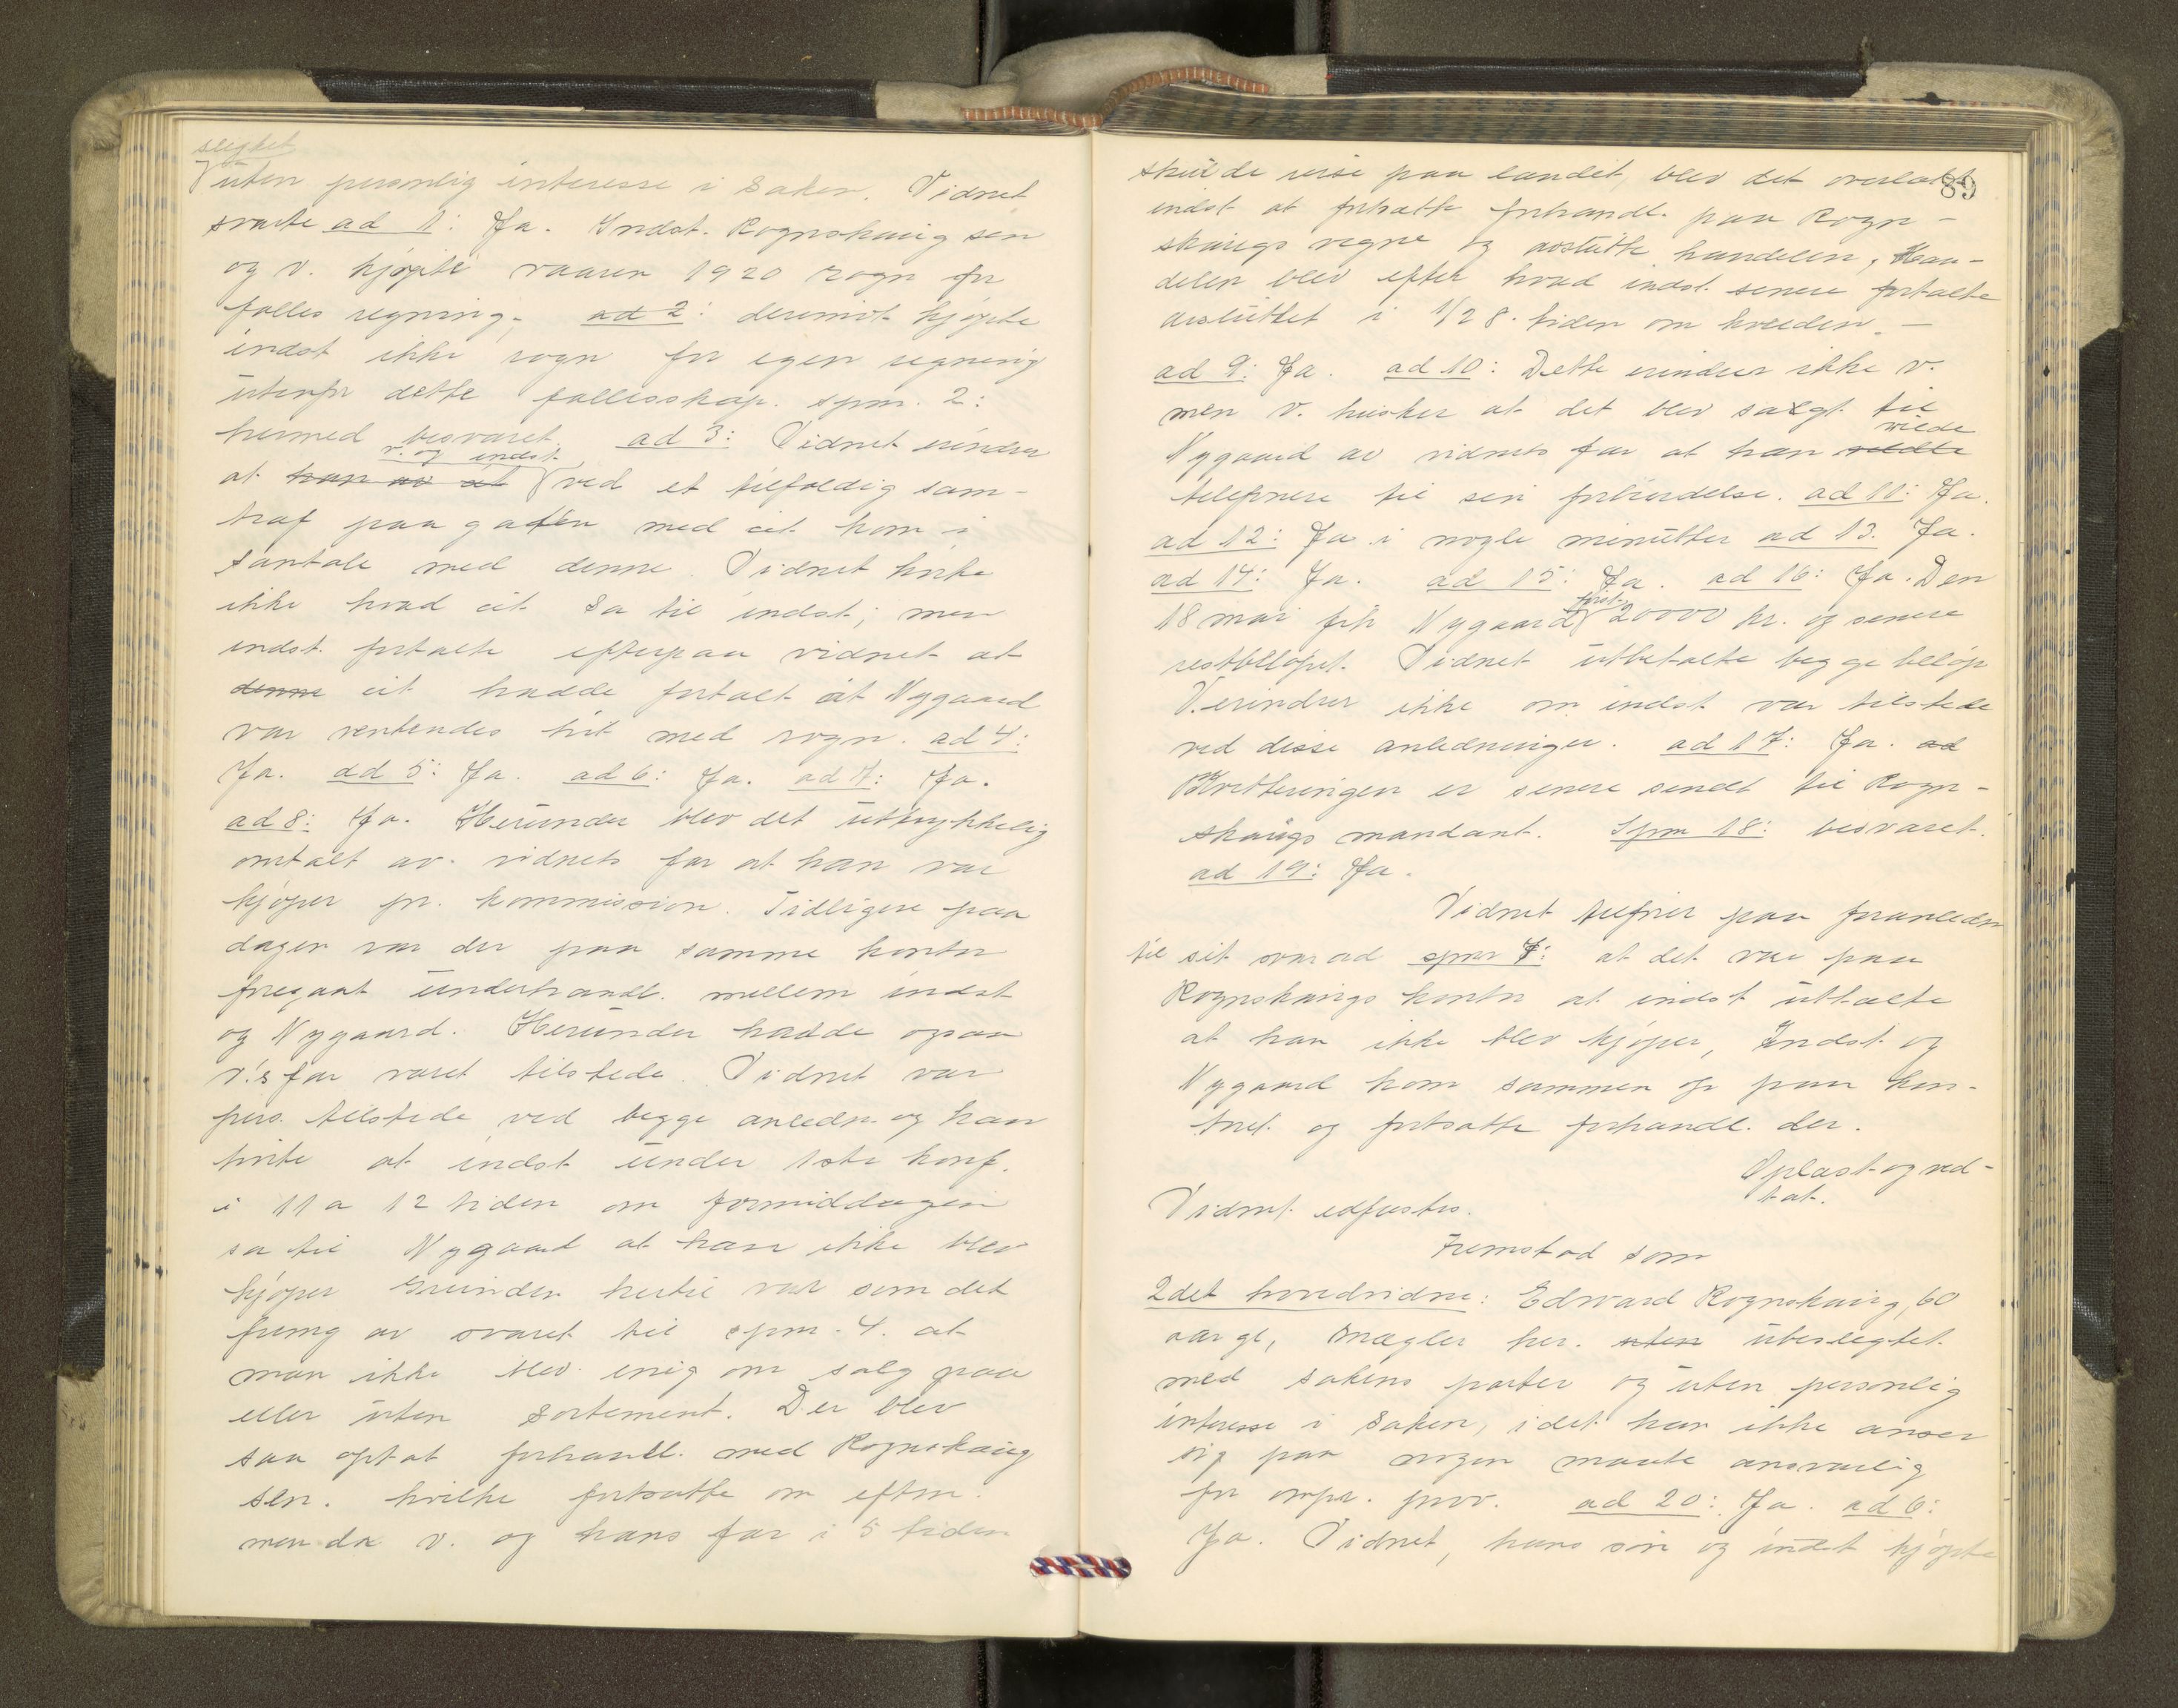 slegtet
uten personlig interesse i saken. Vidnet
svarte ad 1: Ja. Indst. Rognskaug sen
og v. kjøpte vaaren 1920 rogn for
fælles regning. ad 2: derimot kjøpte
indst ikke rogn for egen regning
utenfor dette fællesskap. spm. 2:
hermed besvaret. ad 3: Vidnet erindrer
v. og indst.
at han av cit ved et tilfældig sam-
traf paa gaten med cit kom i
samtale med denne. Vidnet hørte
ikke hvad cit sa til indst; men
indst. fortalte efterpaa vidnet at
denne cit hadde fortalt at Nygaard
var ventendes hit med rogn. ad 4:
Ja. ad 5: Ja. ad 6: Ja. ad 7: Ja.
ad 8: Ja. Herunder blev det uttrykkelig
omtalt av vidnets far at han var
kjøper pr. kommission. Tidligere paa
dagen var der paa samme kontor
foregaat underhandl. mellem indst
og Nygaard. Herunder hadde ogsaa
v.'s far været tilstede. Vidnet var
pers. tilstede ved begge anledn. og han
hørte at indst under 1ste konf.
i 11 a 12 tiden om formiddagen
sa til Nygaard at han ikke blev
kjøper Grunden hertil var som det
fremg av svaret til spm. 4. at
man ikke blev enig om salg paa
eller uten sortement. Der blev
saa optat forhandl. med Rognskaug
sen. hvilke fortsatte om efterm.
men da v. og hans far i 5 tiden
89
skulde reise paa landet, blev det overlatt
indst at fortsatte forhandl. paa Rogn-
skaugs vegne og avslutte handelen, Han-
delen blev efter hvad indst. senere fortalte
avsluttet i 1/2 8. tiden om kvelden. -
ad 9: Ja. ad 10: Dette erindrer ikke v.
men v. husker at det blev sagt til
vilde
Nygaard av vidnets far at han skulde
telefonere til sin forbindelse. ad 11: Ja.
ad 12: Ja i nogle minutter ad 13. Ja.
ad 14: Ja. ad 15: Ja. ad 16: Ja. Den
først
18 mai fik Nygaard 20000 kr. og senere
restbeløpet. Vidnet utbetalte begge beløp
V. erindrer ikke om indst var tilstede
ved disse anledninger. ad 17: Ja. ad
Kvitteringen er senere sendt til Rogn-
skaugs mandant. Spm 18: besvaret.
ad 19: Ja.
Vidnet tilføier paa foranledn
til sit svar ad spm 7: at det var paa
Rognskaugs kontor at indst uttalte
at han ikke blev kjøper, Indst og
Nygaard kom sammen op paa kon-
toret og fortsatte forhandl. der.
Oplæst og ved-
tat.
Vidnet edfæstes.
Fremstod som
2det hovedvidne: Edvard Rognskaug, 60
aar gl, mægler her. uten ubeslegtet
med sakens parter og uten personlig
interesse i saken, idet han ikke anser
sig paa nogen maate ansvarlig
for omspr. prov. ad 20: Ja. ad 6:
Ja. Vidnet, hans søn og indst kjøpte